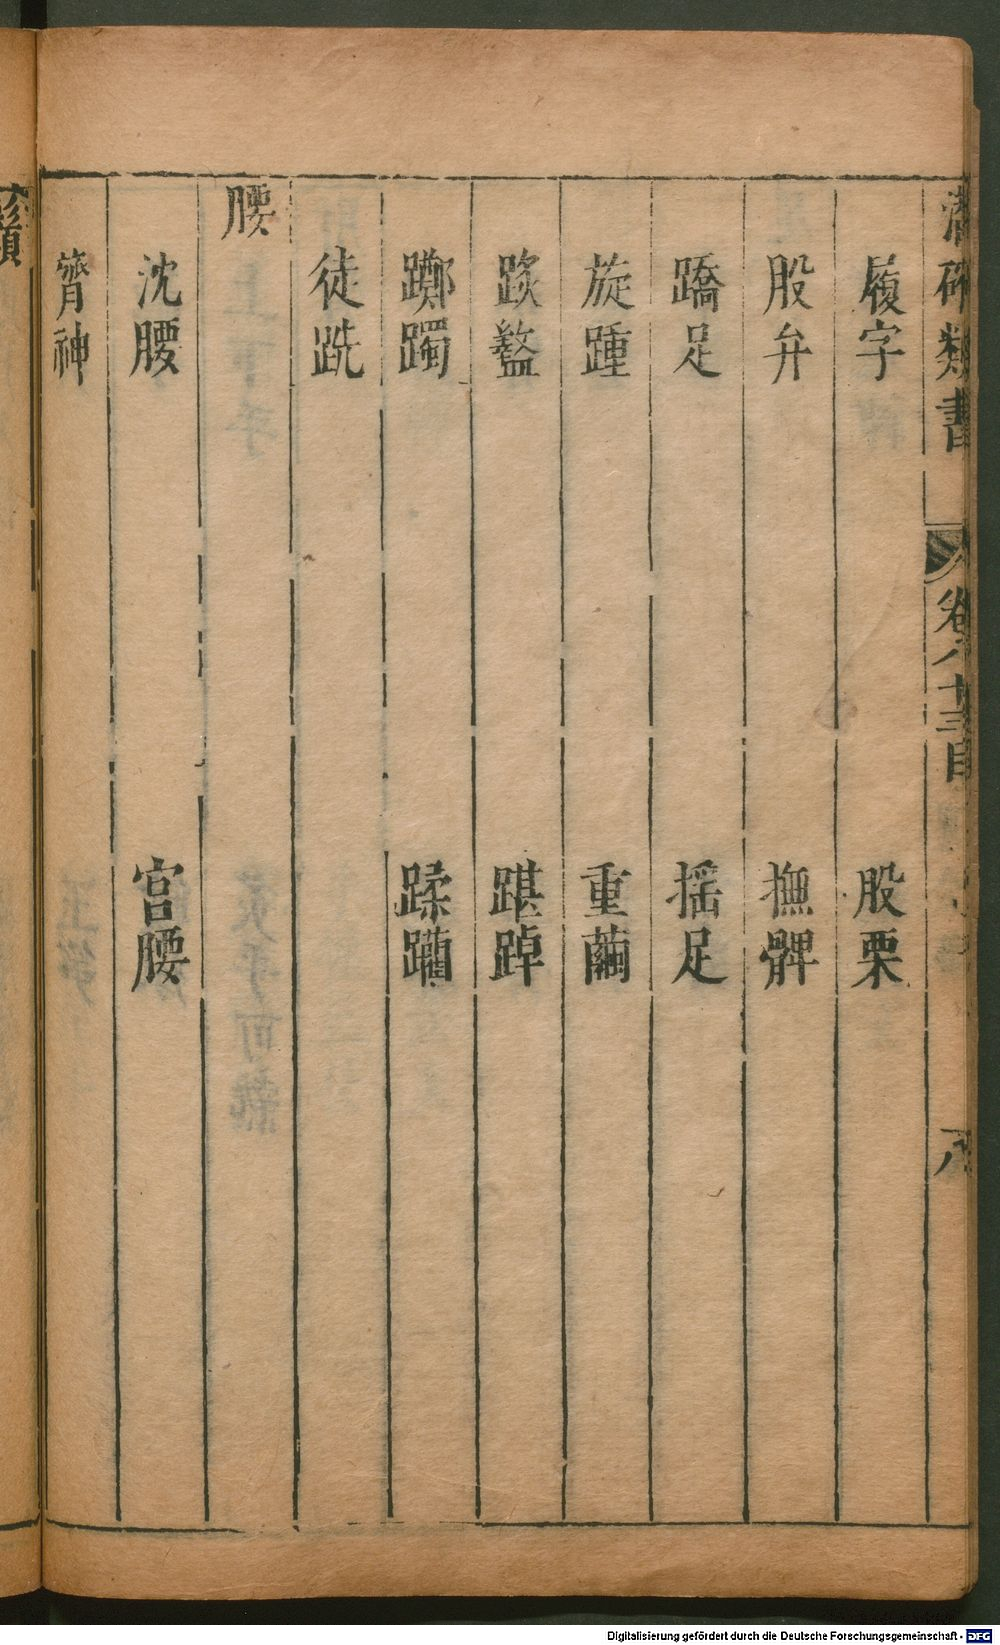 潛確類書 卷八十三目 八
履字 股栗
股弁 撫髀
蹻足 揺足
旋踵 重繭
踥蹩 踸踔
躑躅 蹂躪
徒跣
腰
沈腰 宫腰
膂神
鬚
Digitalisierung gefördert durch die Deutsche Forschungsgemeinschaft - DFG